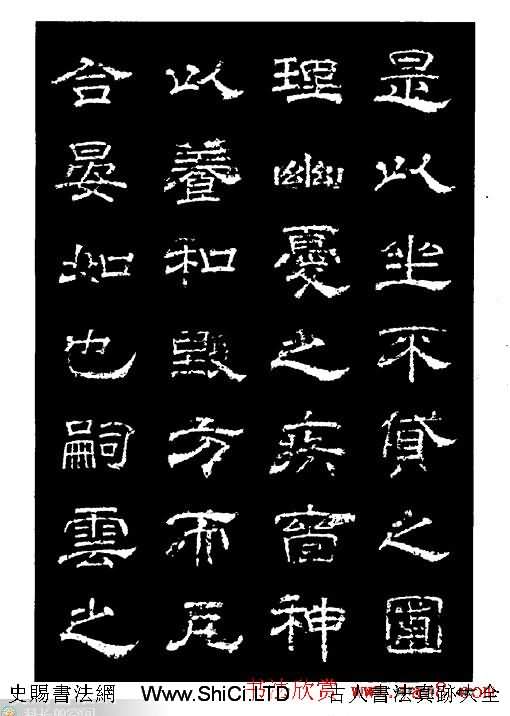 是以坐不貸之圃
理幽憂之疾嗇神
以養和毀方而瓦
合晏如也嗣雲之
书法欣赏
史賜書法網 www.ShiCi.LTD 古人書法真跡大全